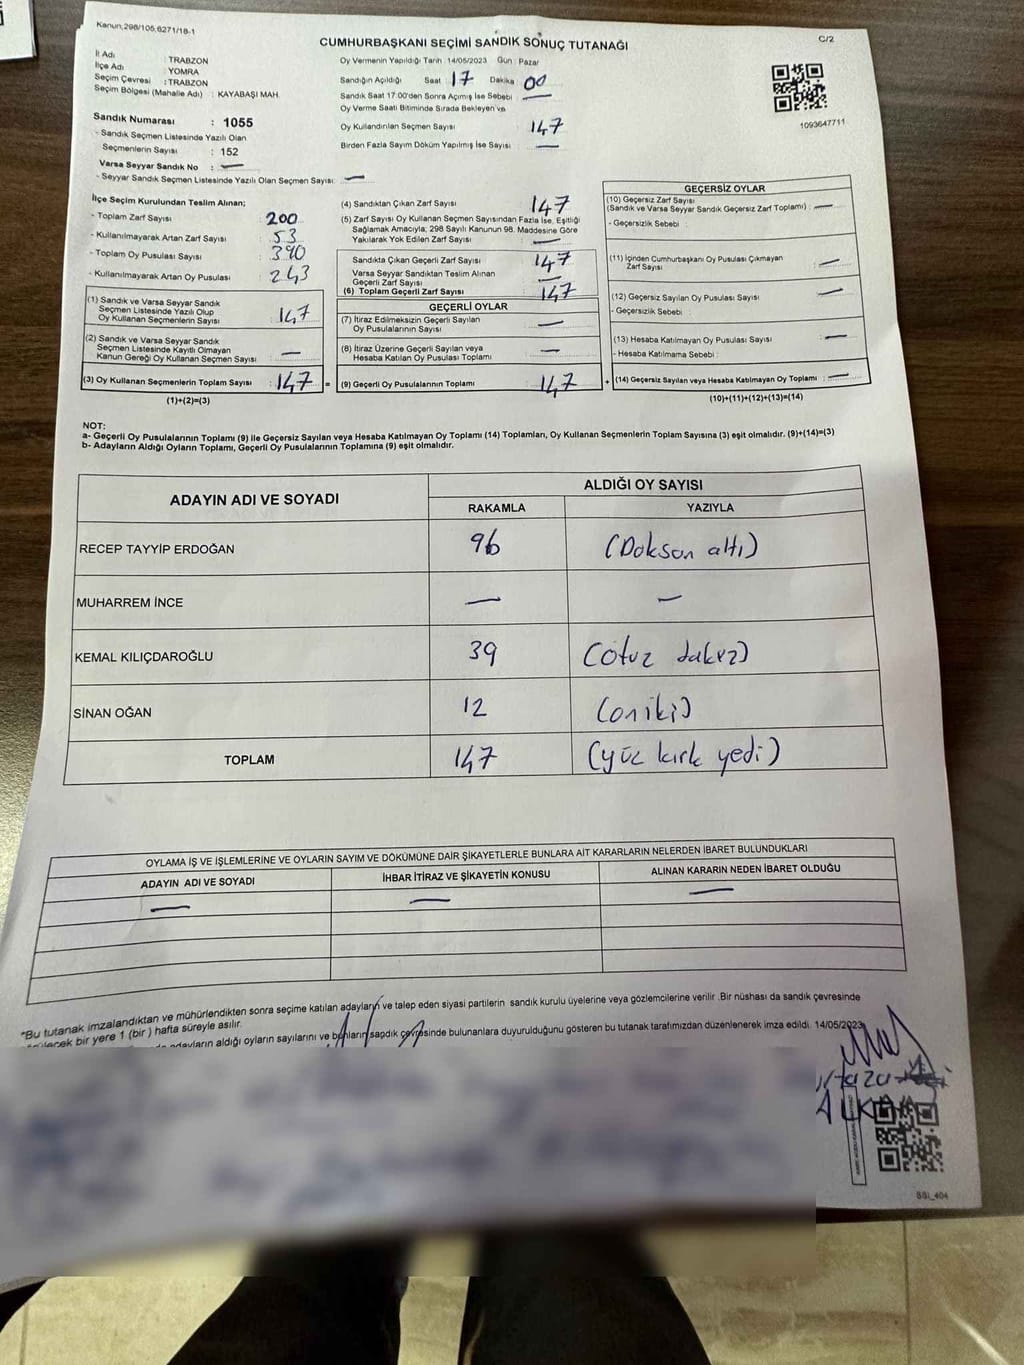 Kanun;298/105,6271/18-1
CUMHURBAŞKANI SEÇİMİ SANDIK SONUÇ TUTANAĞI
C/2
İl Adı : TRABZON
İlçe Adı : YOMRA
Seçim Çevresi : TRABZON
Seçim Bölgesi (Mahalle Adı) : KAYABAŞI MAH.
Sandık Numarası : 1055
- Sandık Seçmen Listesinde Yazılı Olan
Seçmenlerin Sayısı : 152
Varsa Seyyar Sandık No : —
- Seyyar Sandık Seçmen Listesinde Yazılı Olan Seçmen Sayısı: —
Oy Vermenin Yapıldığı Tarih : 14/05/2023 Gün : Pazar
Sandığın Açıldığı Saat : 17 Dakika : 00
Sandık Saat 17.00'den Sonra Açımış İse Sebebi : —
Oy Verme Saati Bitiminde Sırada Bekleyen ve
Oy Kullandırılan Seçmen Sayısı : 147
Birden Fazla Sayım Döküm Yapılmış İse Sayısı : —
1093647711
İlçe Seçim Kurulundan Teslim Alınan;
- Toplam Zarf Sayısı : 200
- Kullanılmayarak Artan Zarf Sayısı : 53
- Toplam Oy Pusulası Sayısı : 390
- Kullanılmayarak Artan Oy Pusulası : 243
(1) Sandık ve Varsa Seyyar Sandık
Seçmen Listesinde Yazılı Olup
Oy Kullanan Seçmenlerin Sayısı : 147
(2) Sandık ve Varsa Seyyar Sandık
Seçmen Listesinde Kayıtlı Olmayan
Kanun Gereği Oy Kullanan Seçmen Sayısı : —
(3) Oy Kullanan Seçmenlerin Toplam Sayısı : 147 =
(1)+(2)=(3)
(4) Sandıktan Çıkan Zarf Sayısı : 147
(5) Zarf Sayısı Oy Kullanan Seçmen Sayısından Fazla İse, Eşitliği
Sağlamak Amacıyla; 298 Sayılı Kanunun 98. Maddesine Göre
Yakılarak Yok Edilen Zarf Sayısı : —
Sandıkta Çıkan Geçerli Zarf Sayısı : 147
Varsa Seyyar Sandıktan Teslim Alınan
Geçerli Zarf Sayısı : —
(6) Toplam Geçerli Zarf Sayısı : 147
GEÇERLİ OYLAR
(7) İtiraz Edilmeksizin Geçerli Sayılan
Oy Pusulasının Sayısı : —
(8) İtiraz Üzerine Geçerli Sayılan veya
Hesaba Katılan Oy Pusulası Toplamı : —
(9) Geçerli Oy Pusulalarının Toplamı : 147 +
GEÇERSİZ OYLAR
(10) Geçersiz Zarf Sayısı
(Sandık ve Varsa Seyyar Sandık Geçersiz Zarf Toplamı) : —
- Geçersizlik Sebebi :
(11) İçinden Cumhurbaşkanı Oy Pusulası Çıkmayan
Zarf Sayısı : —
(12) Geçersiz Sayılan Oy Pusulası Sayısı : —
- Geçersizlik Sebebi :
(13) Hesaba Katılmayan Oy Pusulası Sayısı : —
- Hesaba Katılmama Sebebi :
(14) Geçersiz Sayılan veya Hesaba Katılmayan Oy Toplamı : —
(10)+(11)+(12)+(13)=(14)
NOT:
a- Geçerli Oy Pusulalarının Toplamı (9) ile Geçersiz Sayılan veya Hesaba Katılmayan Oy Toplamı (14) Toplamları, Oy Kullanan Seçmenlerin Toplam Sayısına (3) eşit olmalıdır. (9)+(14)=(3)
b- Adayların Aldığı Oyların Toplamı, Geçerli Oy Pusulalarının Toplamına (9) eşit olmalıdır.
ADAYIN ADI VE SOYADI
ALDIĞI OY SAYISI
RAKAMLA YAZIYLA
RECEP TAYYİP ERDOĞAN 96 (Doksan altı)
MUHARREM İNCE — —
KEMAL KILIÇDAROĞLU 39 (Otuz dokuz)
SİNAN OĞAN 12 (oniki)
TOPLAM 147 (yüz kırk yedi)
OYLAMA İŞ VE İŞLEMLERİNE VE OYLARIN SAYIM VE DÖKÜMÜNE DAİR ŞİKAYETLERLE BUNLARA AİT KARARLARIN NELERDEN İBARET BULUNDUKLARI
ADAYIN ADI VE SOYADI İHBAR İTİRAZ VE ŞİKAYETİN KONUSU ALINAN KARARIN NEDEN İBARET OLDUĞU
— — —
"Bu tutanak imzalandıktan ve mühürlendikten sonra seçime katılan adayların ve talep eden siyasi partilerin sandık kurulu üyelerine veya gözlemcilerine verilir .Bir nüshası da sandık çevresinde
bir yere 1 (bir ) hafta süreyle asılır.
adayların aldığı oyların sayılarını ve bunların sandık çevresinde bulunanlara duyurulduğunu gösteren bu tutanak tarafımızdan düzenlenerek imza edildi. 14/05/2023
SSI_404